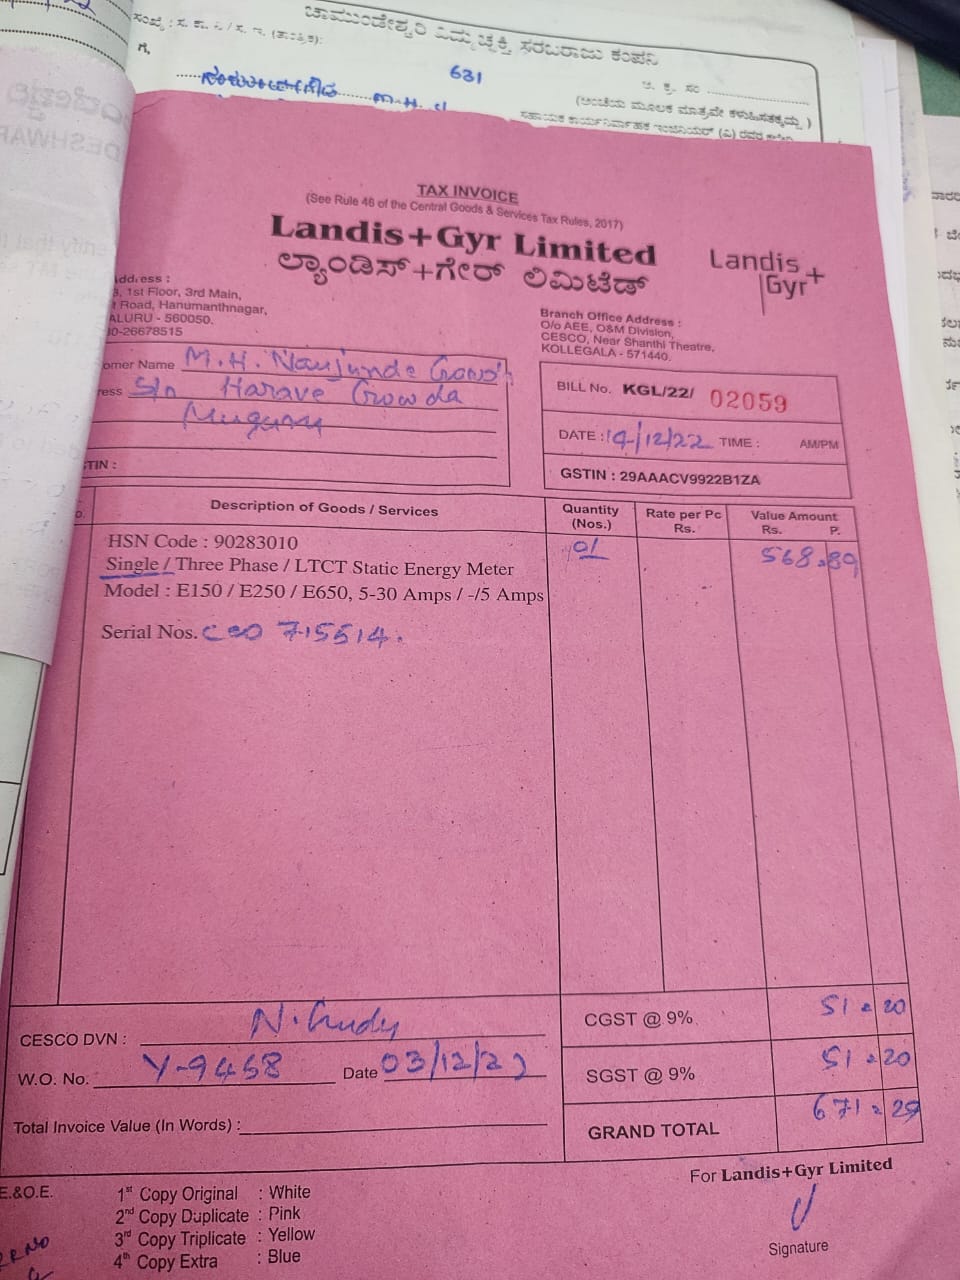 ಚಾಮುಂಡೇಶ್ವರಿ ವಿದ್ಯುಚ್ಛಕ್ತಿ ಸರಬರಾಜು ಕಂಪನಿ
ಗೆ,
631
(ಅಂಚೆಯ ಮೂಲಕ ಮಾತ್ರವೇ ಕಳುಹಿಸತಕ್ಕದ್ದು)
TAX INVOICE
(See Rule 46 of the Central Goods & Services Tax Rules, 2017)
Landis+Gyr Limited
ಲ್ಯಾಂಡಿಸ್+ಗೇರ್ ಲಿಮಿಟೆಡ್
Landis+
Gyr+
ddress :
, 1st Floor, 3rd Main,
Road, Hanumanthnagar,
ALURU - 560050.
0-26678515
Branch Office Address :
O/o AEE, O&M Division,
CESCO, Near Shanthi Theatre,
KOLLEGALA - 571440.
omer Name M.H. Nanjunde Gowda
ress S/o Harave Gowda
TIN :
BILL No. KGL/22/ 02059
DATE : 14/12/22 TIME : AM/PM
GSTIN : 29AAACV9922B1ZA
o. Description of Goods / Services Quantity (Nos.) Rate per Pc Rs. Value Amount Rs. P.
HSN Code : 90283010 01 568.89
Single / Three Phase / LTCT Static Energy Meter
Model : E150 / E250 / E650, 5-30 Amps / -/5 Amps
Serial Nos. 715514.
CGST @ 9% 51 = 20
SGST @ 9% 51 = 20
GRAND TOTAL 671 = 29
CESCO DVN :
W.O. No. Y-9468 Date 03/12/22
Total Invoice Value (In Words) :
For Landis+Gyr Limited
Signature
E.&O.E.
1st Copy Original : White
2nd Copy Duplicate : Pink
3rd Copy Triplicate : Yellow
4th Copy Extra : Blue